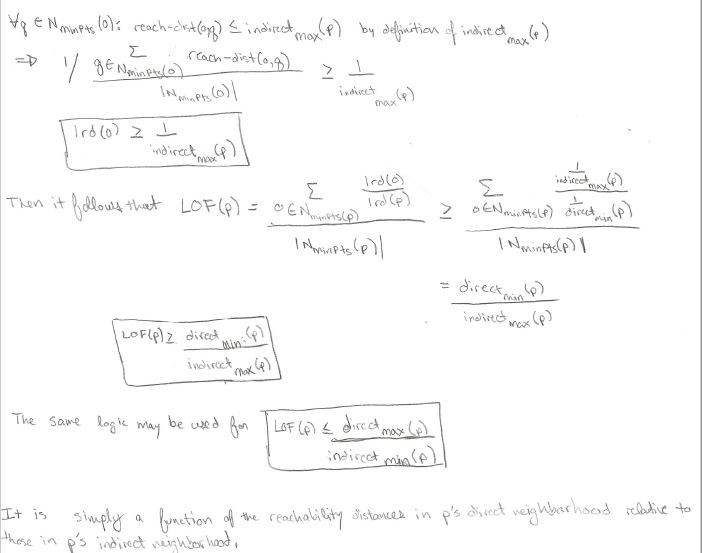 ∀q ∈ N_MinPts(o): reach-dist(o,q) ≤ indirect_max(p) by definition of indirect_max(p)
⇒ 1 / (∑_{q∈N_MinPts(o)} reach-dist(o,q) / |N_MinPts(o)|) ≥ 1 / indirect_max(p)
lrd(o) ≥ 1 / indirect_max(p)
Then it follows that LOF(p) = (∑_{o∈N_MinPts(p)} lrd(o) / lrd(p)) / |N_MinPts(p)| ≥ (∑_{o∈N_MinPts(p)} (1 / indirect_max(p)) / (1 / direct_min(p))) / |N_MinPts(p)|
= direct_min(p) / indirect_max(p)
LOF(p) ≥ direct_min(p) / indirect_max(p)
The same logic may be used for LOF(p) ≤ direct_max(p) / indirect_min(p)
It is simply a function of the reachability distances in p's direct neighborhood relative to
those in p's indirect neighborhood.